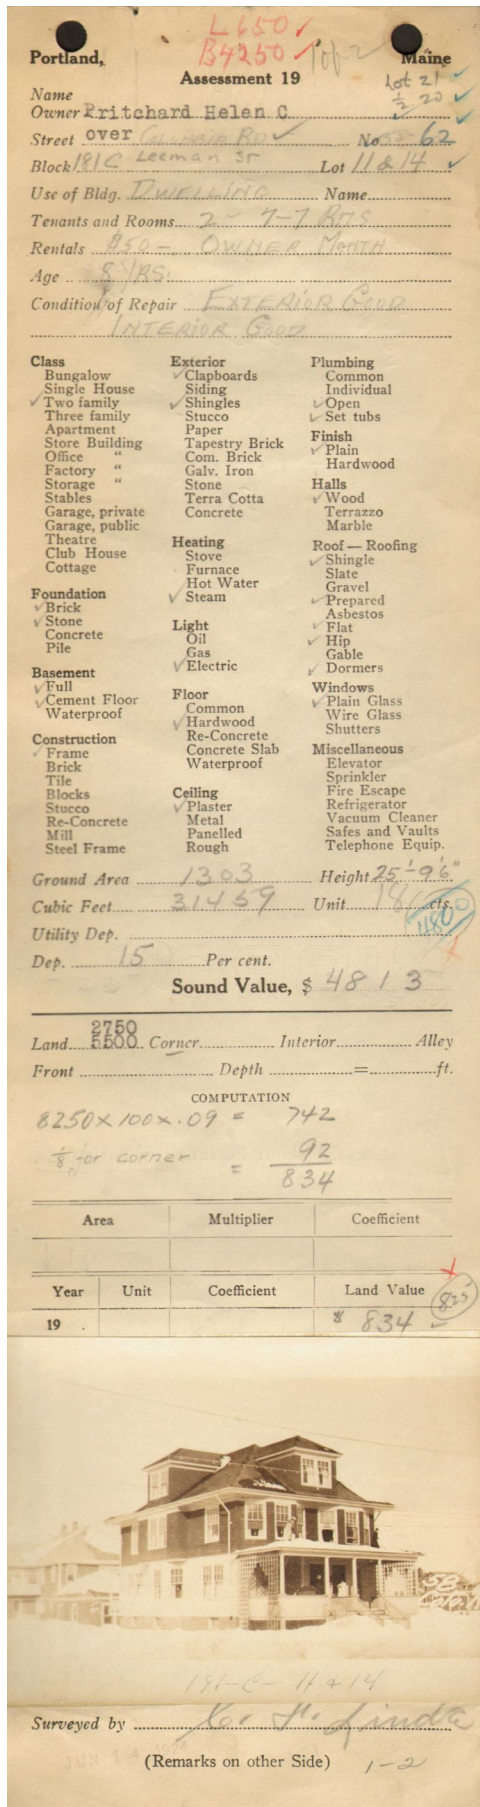 L 650 ✓
B 4250 ✓ 1 of 2
Portland, Maine
Assessment 19
Lot 21 ✓
½ 20 ✓
Name
Owner Pritchard Helen C
Street over Columbia Rd ✓ No. 58-62
Block 181C Leeman Sr Lot 11 & 14 ✓
Use of Bldg. DWELLING Name
Tenants and Rooms 2 - 7-7 RMS
Rentals $50 - OWNER MONTH
Age 8 YRS.
Condition of Repair EXTERIOR GOOD
INTERIOR GOOD
Class
Bungalow
Single House
✓ Two family
Three family
Apartment
Store Building
Office "
Factory "
Storage "
Stables
Garage, private
Garage, public
Theatre
Club House
Cottage
Foundation
✓ Brick
✓ Stone
Concrete
Pile
Basement
✓ Full
✓ Cement Floor
Waterproof
Construction
✓ Frame
Brick
Tile
Blocks
Stucco
Re-Concrete
Mill
Steel Frame
Exterior
✓ Clapboards
Siding
✓ Shingles
Stucco
Paper
Tapestry Brick
Com. Brick
Galv. Iron
Stone
Terra Cotta
Concrete
Heating
Stove
Furnace
Hot Water
✓ Steam
Light
Oil
Gas
✓ Electric
Floor
Common
✓ Hardwood
Re-Concrete
Concrete Slab
Waterproof
Ceiling
✓ Plaster
Metal
Panelled
Rough
Plumbing
Common
Individual
✓ Open
✓ Set tubs
Finish
✓ Plain
Hardwood
Halls
✓ Wood
Terrazzo
Marble
Roof — Roofing
✓ Shingle
Slate
Gravel
✓ Prepared
Asbestos
✓ Flat
✓ Hip
Gable
✓ Dormers
Windows
✓ Plain Glass
Wire Glass
Shutters
Miscellaneous
Elevator
Sprinkler
Fire Escape
Refrigerator
Vacuum Cleaner
Safes and Vaults
Telephone Equip.
Ground Area 1303 Height 25'-9'6"
Cubic Feet 31459 Unit 18 cts.
4800
Utility Dep.
Dep. 15 Per cent.
Sound Value, $ 4813
2750
Land 5500 Corner Interior Alley
Front Depth = ft.
COMPUTATION
8250 x 100 x .09 = 742
⅛ for corner = 92
834
Area Multiplier Coefficient
Year Unit Coefficient Land Value
825
19 . $ 834
58
191-C- 11 & 14
Surveyed by
JUN 14 1924
(Remarks on other Side) 1-2